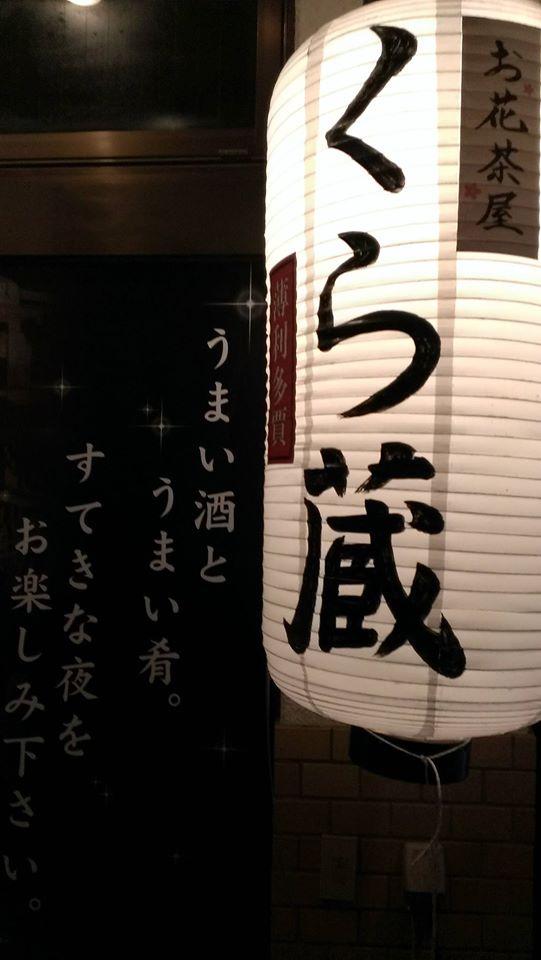 お花茶屋
くら蔵
薄利多賈
うまい酒と
うまい肴。
すてきな夜を
お楽しみ下さい。